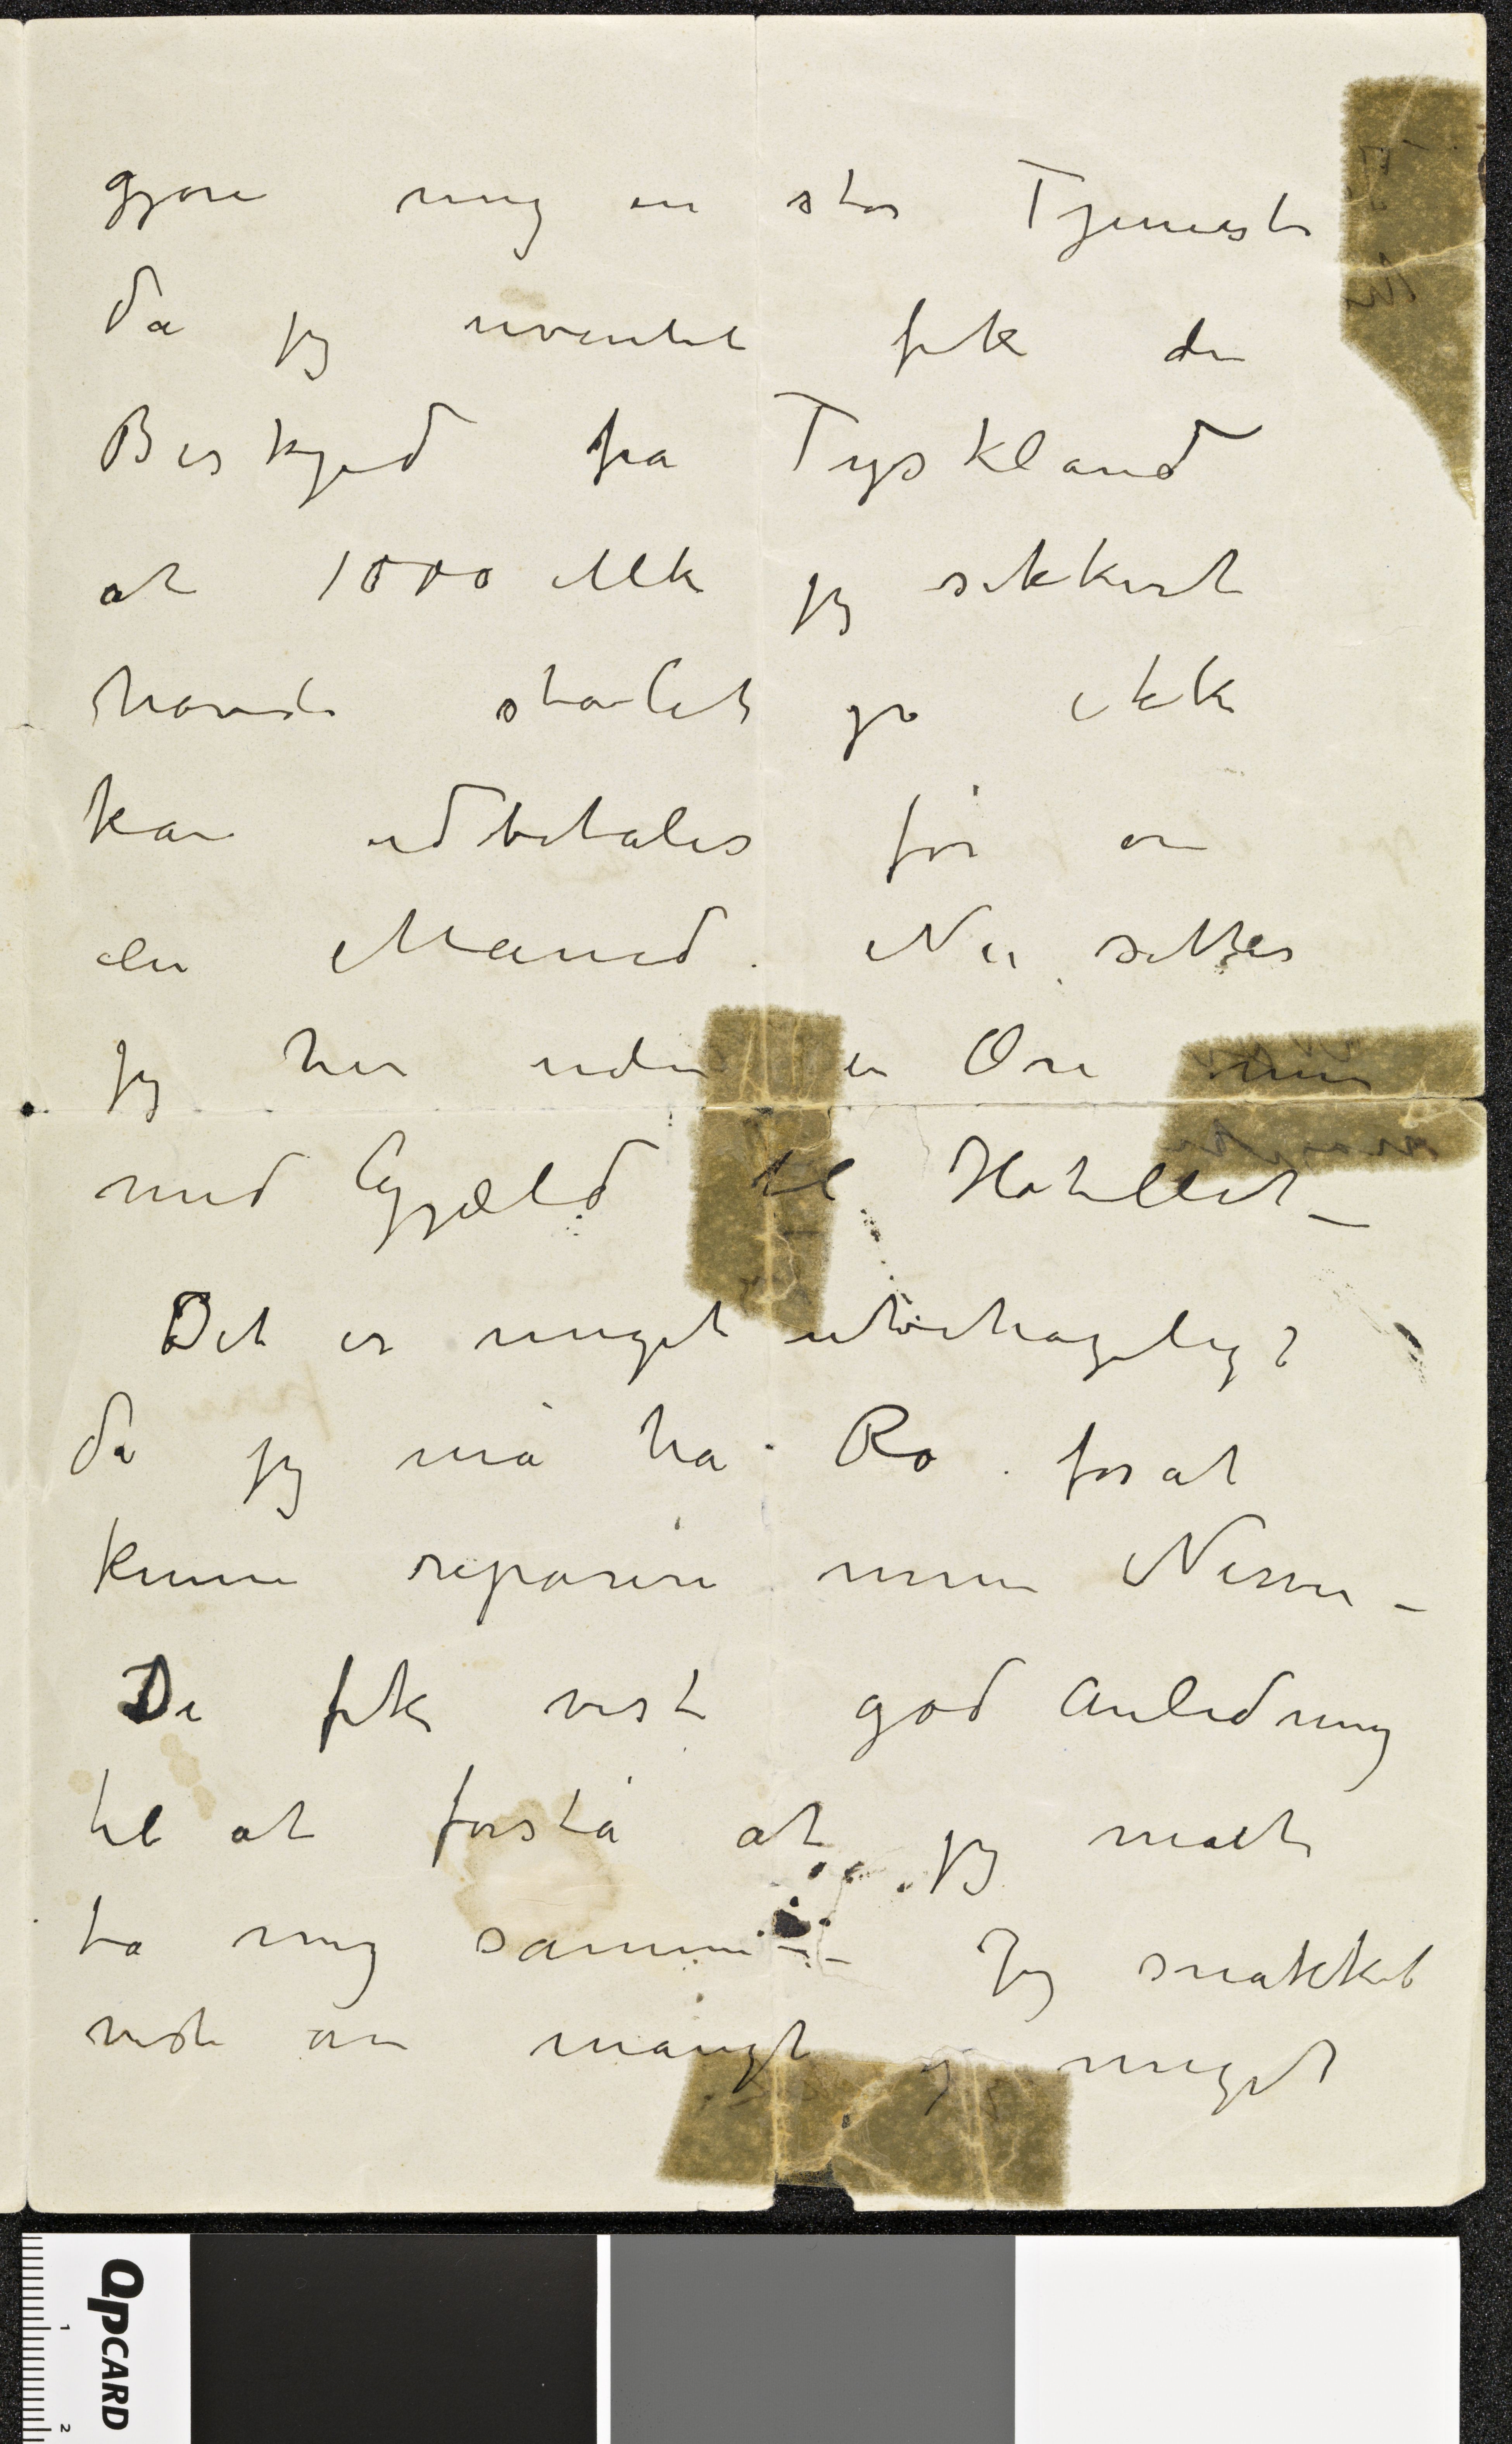 gjøre mig en stor Tjeneste
da jeg uventet fik den
Beskjed fra Tyskland
at 1000 Mk jeg sikkert
havde stolet på ikke
kan udbetales før om
en Måned. Nu sitter
jeg her uden en Øre men
med Gjæld til Hotellet_
Det er meget ubehageligt
da jeg må ha Ro forat
kunne reparere mine Nerver_
De fik vist god Anledning
til at forstå at jeg måtte
ta mig sammen_ Jeg snakket
vist om mangt og meget
QPCARD
1
2